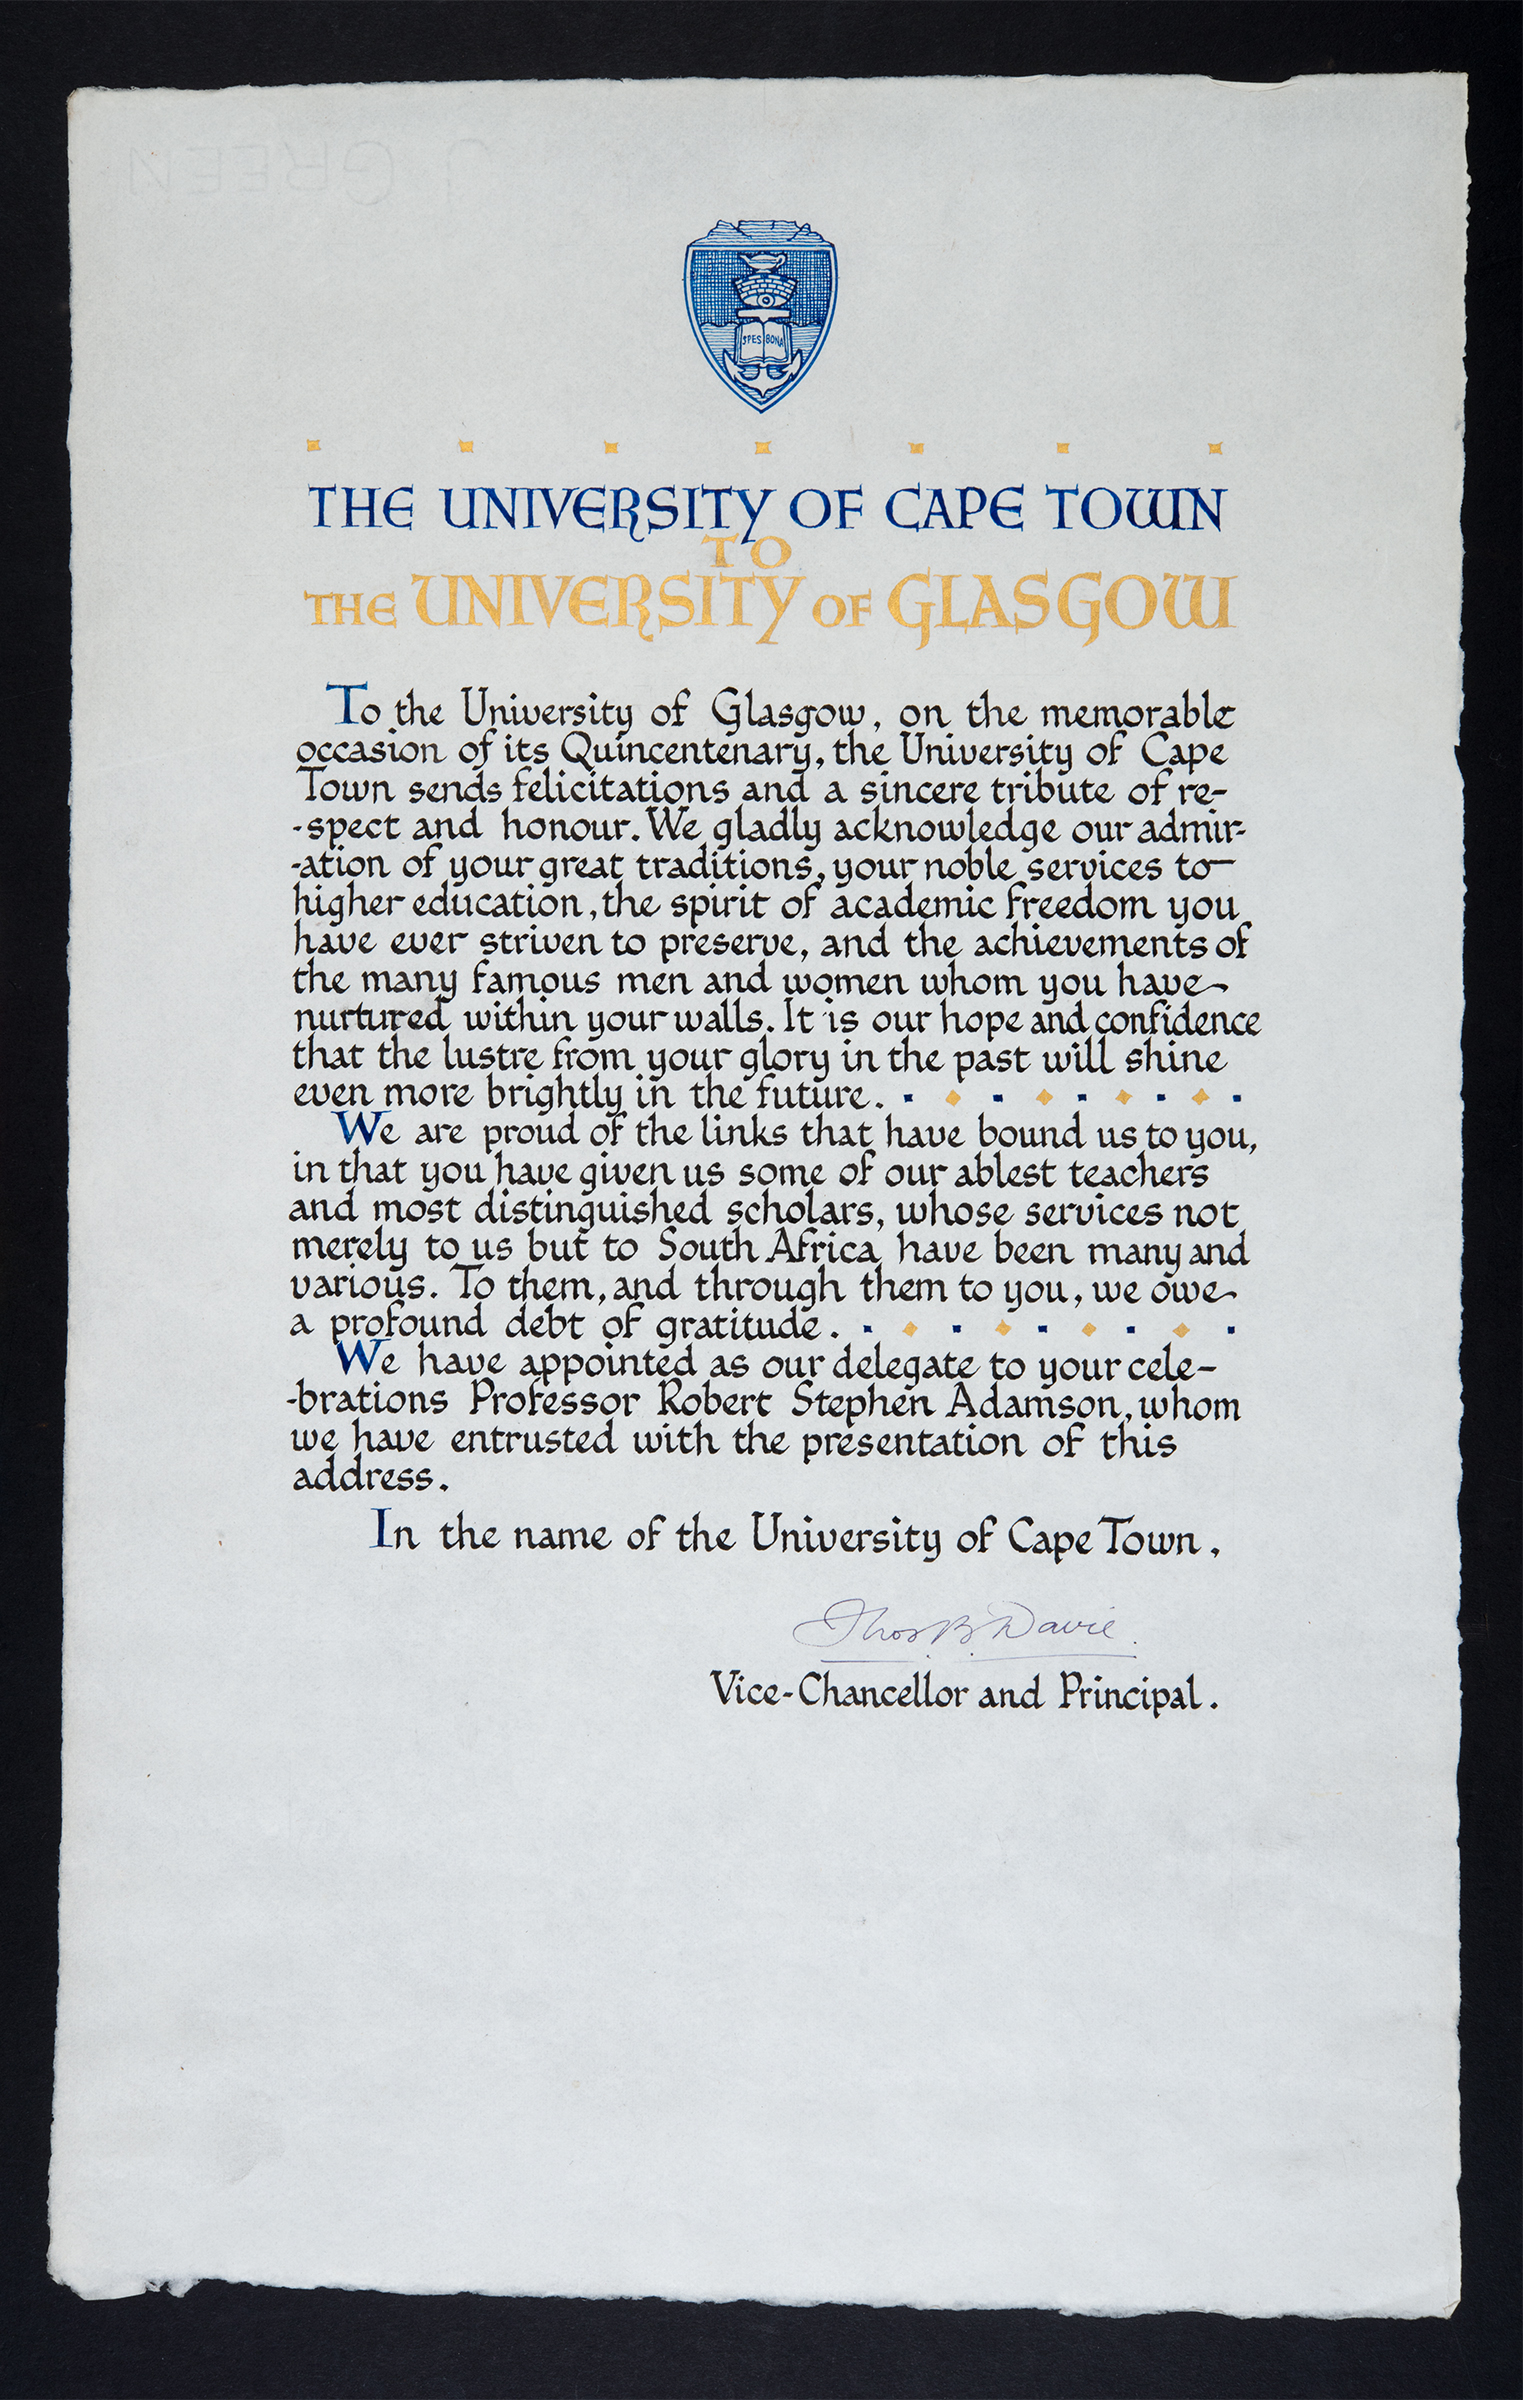 J GREEN
SPES BONA
THE UNIVERSITY OF CAPE TOWN
TO
THE UNIVERSITY OF GLASGOW
To the University of Glasgow, on the memorable
occasion of its Quincentenary, the University of Cape
Town sends felicitations and a sincere tribute of re-
-spect and honour. We gladly acknowledge our admir-
-ation of your great traditions, your noble services to
higher education, the spirit of academic freedom you
have ever striven to preserve, and the achievements of
the many famous men and women whom you have
nurtured within your walls. It is our hope and confidence
that the lustre from your glory in the past will shine
even more brightly in the future.
We are proud of the links that have bound us to you,
in that you have given us some of our ablest teachers
and most distinguished scholars, whose services not
merely to us but to South Africa have been many and
various. To them, and through them to you, we owe
a profound debt of gratitude.
We have appointed as our delegate to your cele-
-brations Professor Robert Stephen Adamson, whom
we have entrusted with the presentation of this
address.
In the name of the University of Cape Town,
Thos. B. Davie.
Vice-Chancellor and Principal.